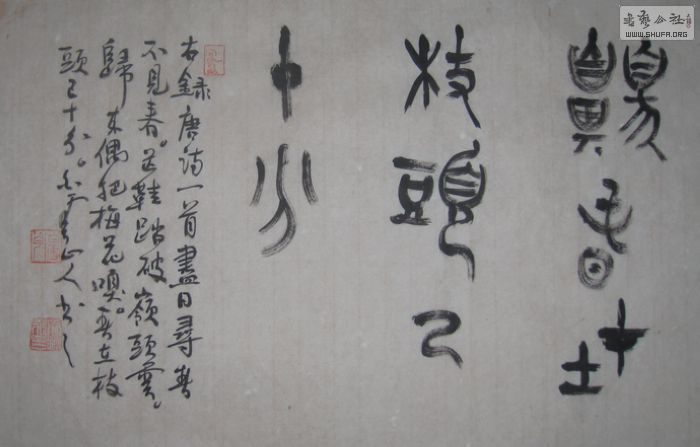 春在
枝頭已
十分
右録唐詩一首盡日尋春
不見春。芒鞋踏破嶺頭雲。
歸來偶把梅花嗅。春在枝
頭已十分。山人書之
書藝公社
WWW.SHUFA.ORG